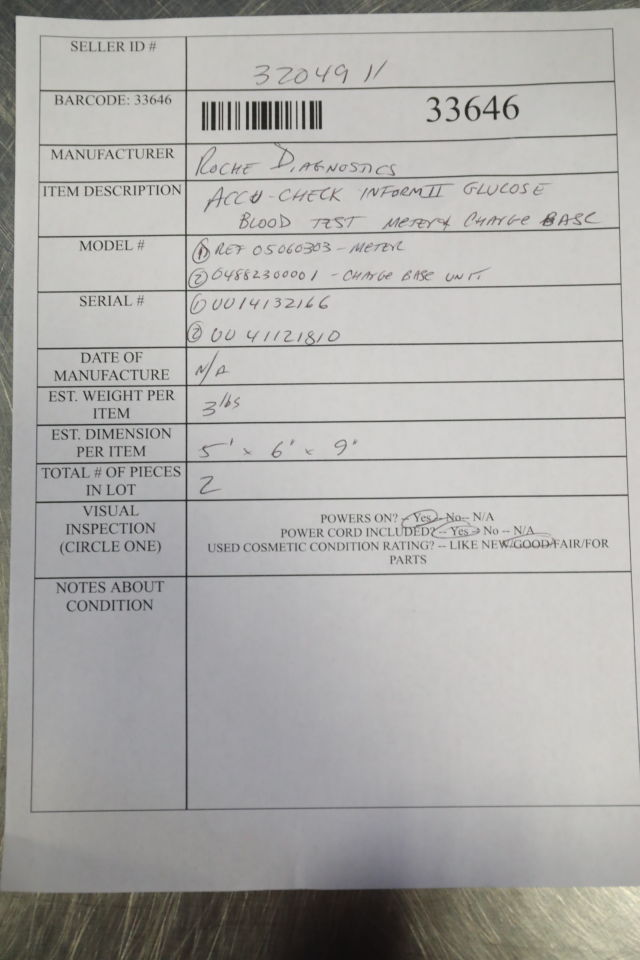 SELLER ID #
32049 11
BARCODE: 33646
33646
MANUFACTURER
ROCHE DIAGNOSTICS
ITEM DESCRIPTION
ACCU-CHECK INFORM II GLUCOSE
BLOOD TEST METER & CHARGE BASE
MODEL #
① REF 05060303 - METER
② 04882300001 - CHARGE BASE UNIT
SERIAL #
① UU14132166
② UU 41121810
DATE OF
MANUFACTURE
N/A
EST. WEIGHT PER
ITEM
3 lbs
EST. DIMENSION
PER ITEM
5" x 6" x 9"
TOTAL # OF PIECES
IN LOT
2
VISUAL
INSPECTION
(CIRCLE ONE)
POWERS ON? -- Yes -- No -- N/A
POWER CORD INCLUDED? -- Yes -- No -- N/A
USED COSMETIC CONDITION RATING? -- LIKE NEW/GOOD/FAIR/FOR
PARTS
NOTES ABOUT
CONDITION